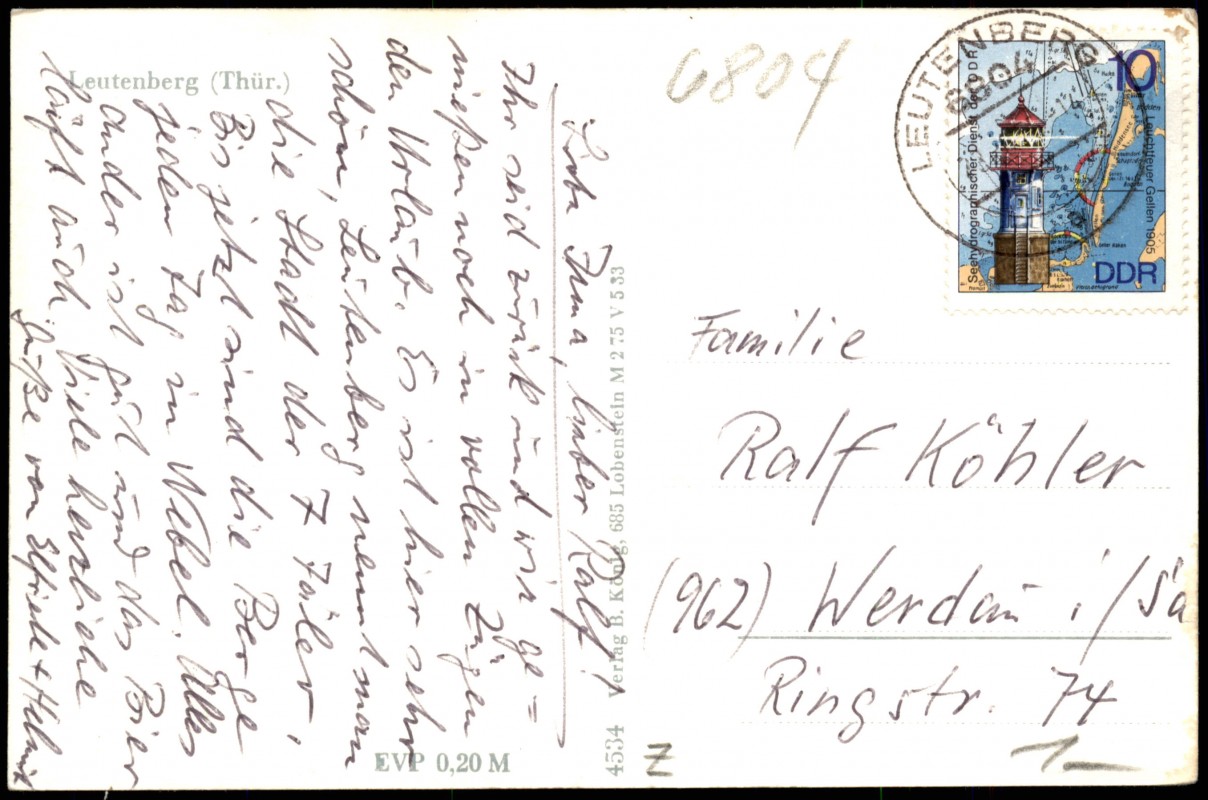 Leutenberg (Thür.)
Liebe Irma, lieber Ralf!
Ihr seid zurück und wir ge=
nießen noch in vollen Zügen
den Urlaub. Es ist hier sehr
schön, Leutenberg nennt man
die Stadt der 7 Täler.
Bis jetzt sind die Berge
jeden Tag in Nebel. Alles
ander ist gut und das Bier
läuft auch. Viele herzliche
Grüße von Elfriede + Helmut
EVP 0,20 M
4534 Verlag B. König, 685 Lobenstein M 2 75 V 5 33
6804
LEUTENBERG
6804
Seehydrographischer Dienst der DDR
10
Leuchtfeuer Gellen 1905
DDR
Familie
Ralf Köhler
(962) Werdau i/Sa
Ringstr. 74
Z
1_